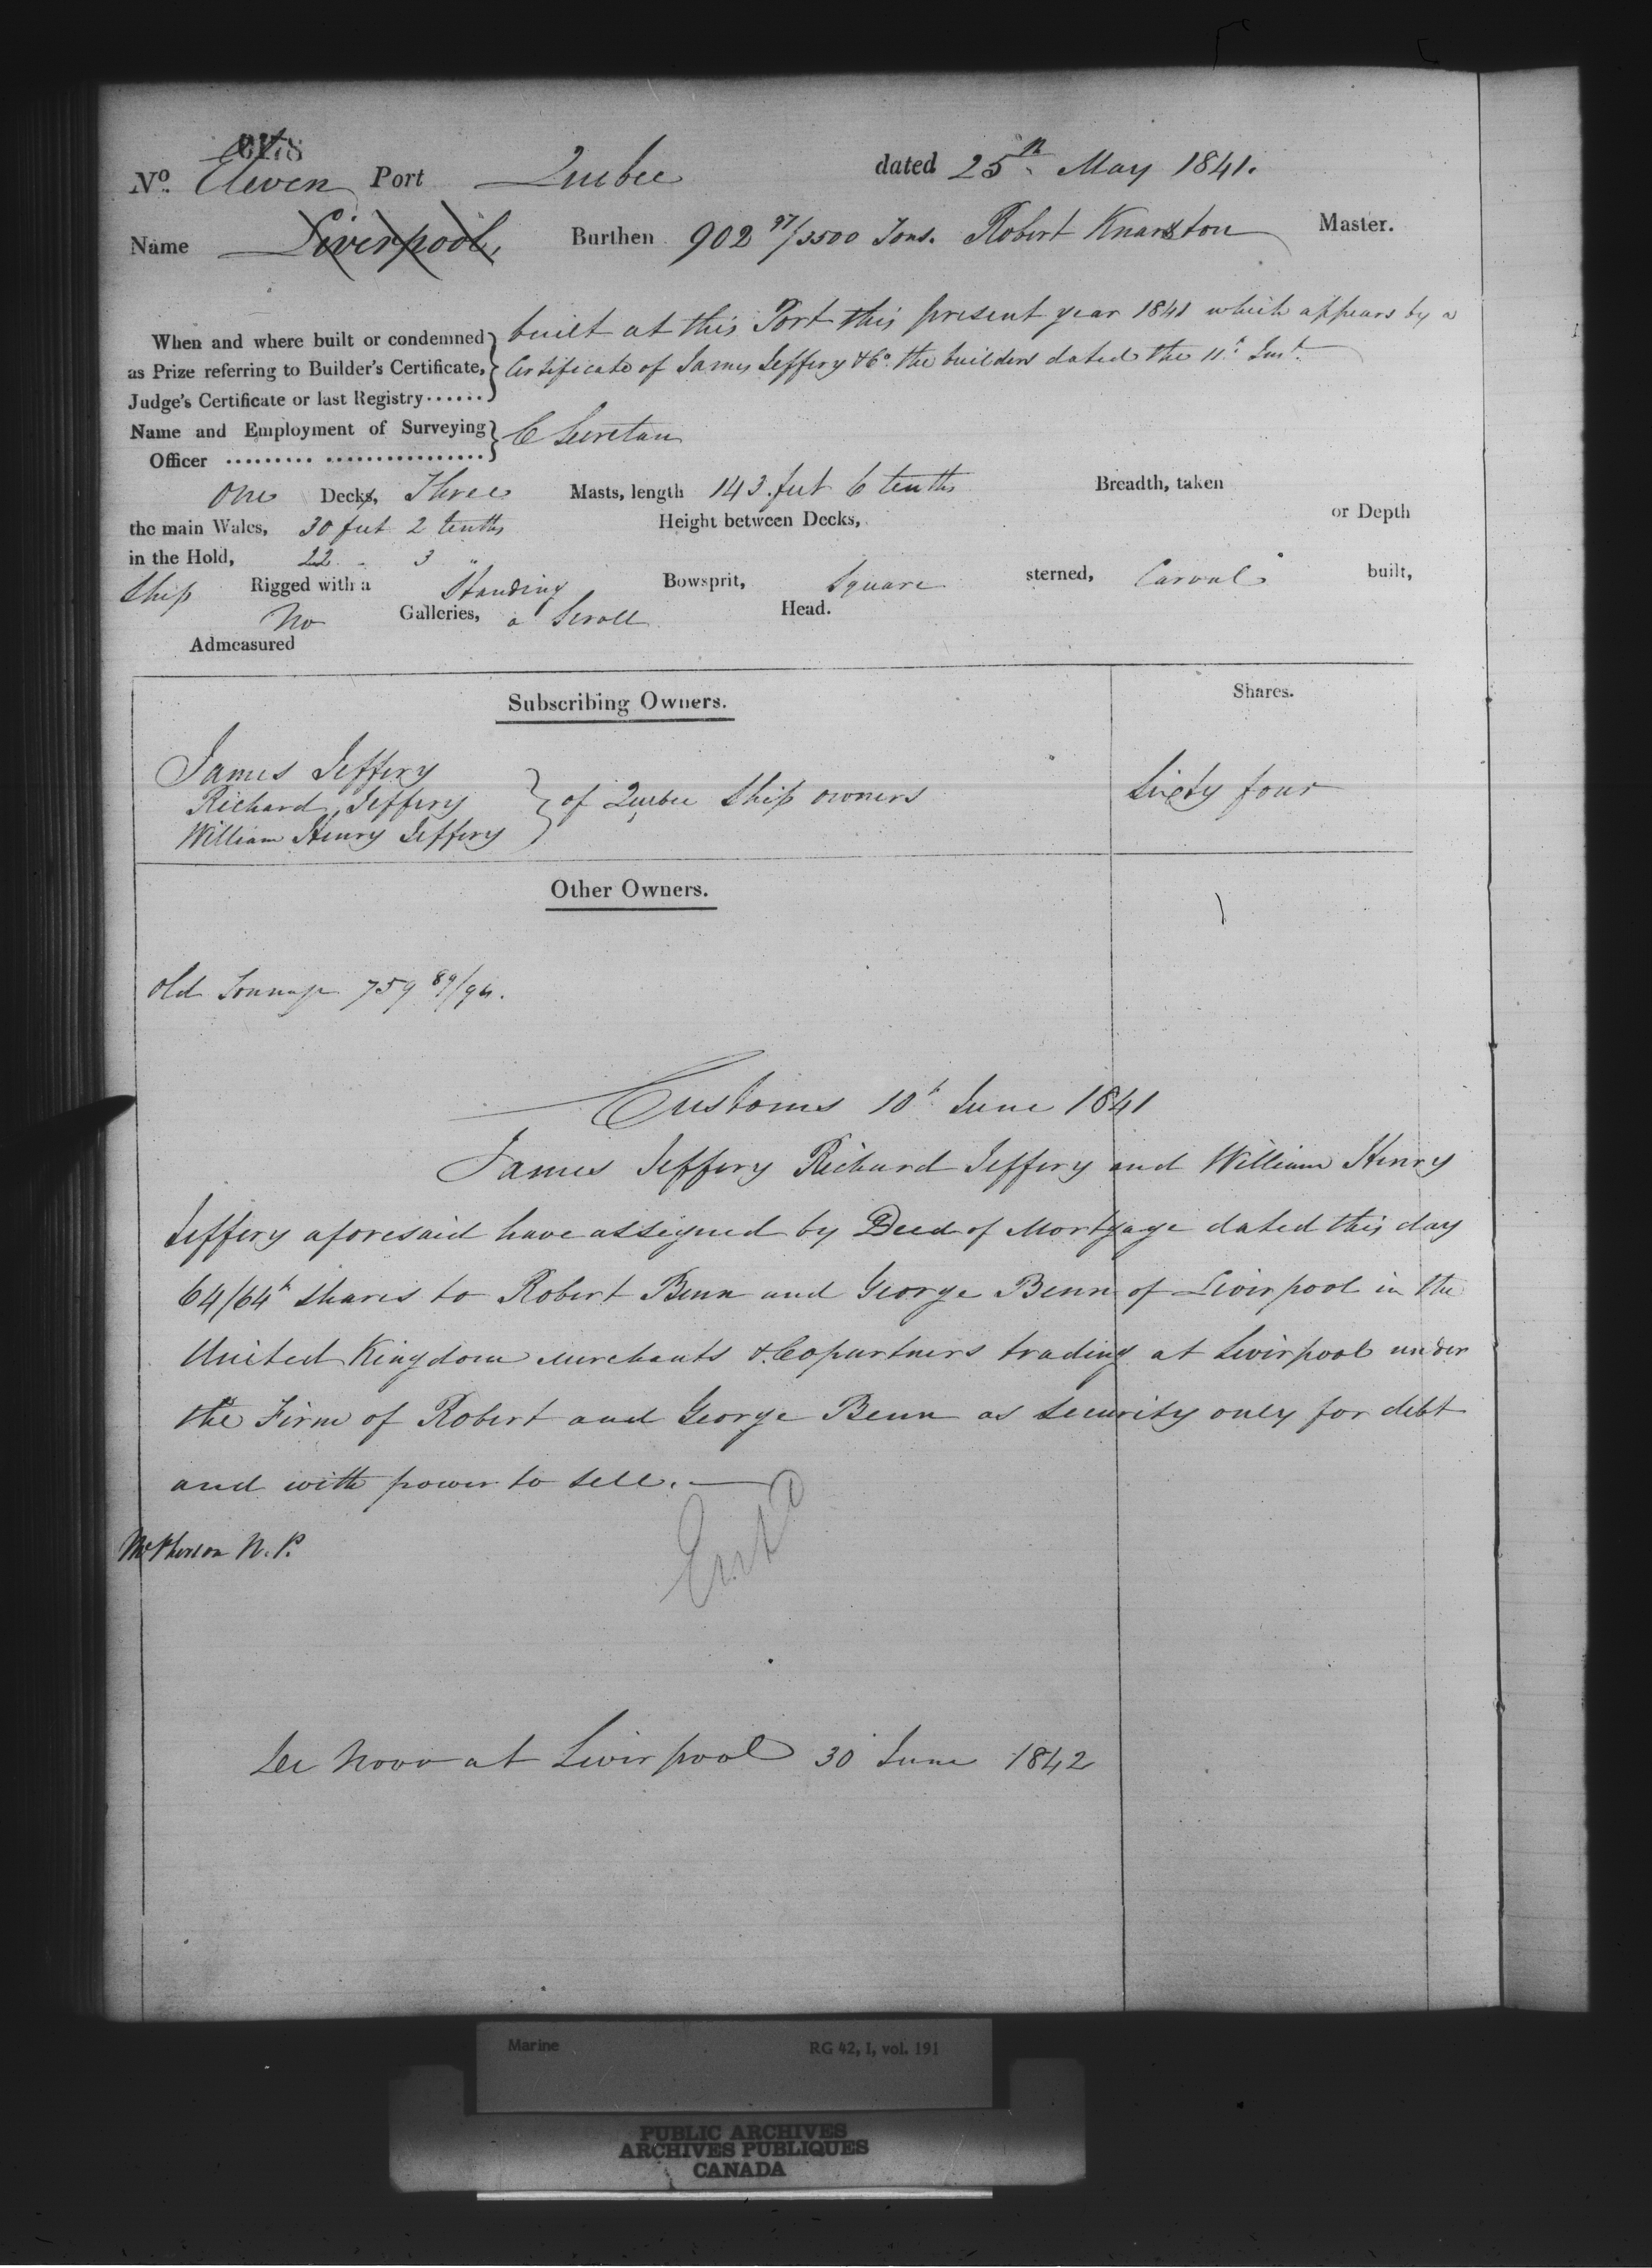 No. Eleven Port Quebec dated 25th May 1841.
Name Liverpool, Burthen 902 97/3500 Tons. Robert Knarston Master.
When and where built or condemned built at this Port this present year 1841 which appears by a
as Prize referring to Builder's Certificate, Certificate of James Jeffery & Co. the builders dated the 11th Inst.
Judge's Certificate or last Registry......
Name and Employment of Surveying C Secretan
Officer ......... ................
One Decks, Three Masts, length 143 feet 6 tenths Breadth, taken
the main Wales, 30 feet 2 tenths Height between Decks, or Depth
in the Hold, 22 3 "
Ship Rigged with a Standing Bowsprit, Square sterned, Carvel built,
No Galleries, a Scroll Head.
Admeasured
Subscribing Owners. Shares.
James Jeffery
Richard Jeffery of Quebec Ship owners Sixty four
William Henry Jeffery
Other Owners.
Old Tonnage 759 89/94.
Customs 10th June 1841
James Jeffery Richard Jeffery and William Henry
Jeffery aforesaid have assigned by Deed of Mortgage dated this day
64/64th shares to Robert Benn and George Benn of Liverpool in the
United Kingdom Merchants & Copartners trading at Liverpool under
the Firm of Robert and George Benn as security only for debt
and with power to sell.
McPherson N.P.
Entd
De Novo at Liverpool 30 June 1842
Marine RG 42, I, vol. 191
PUBLIC ARCHIVES
ARCHIVES PUBLIQUES
CANADA